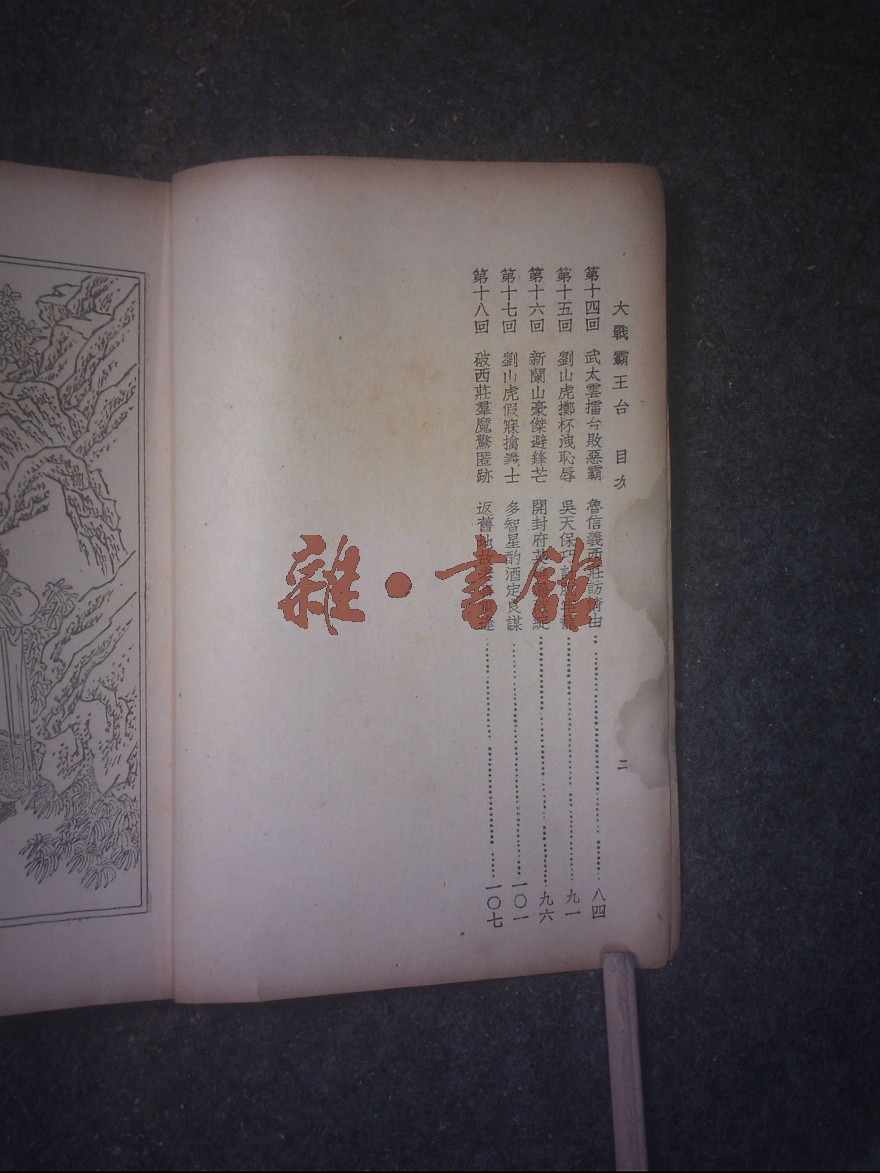 大戰霸王台 目次 二
第十四回 武太雲擂台敗惡霸 魯信義西莊訪情由 八四
第十五回 劉山虎擲杯洩恥辱 吳天保巧 九一
第十六回 新蘭山豪傑避鋒芒 開封府英 九六
第十七回 劉山虎假寐擒識士 多智星酌酒定良謀 一〇一
第十八回 破西莊羣魔驚匿跡 返舊 一〇七
雜·書館